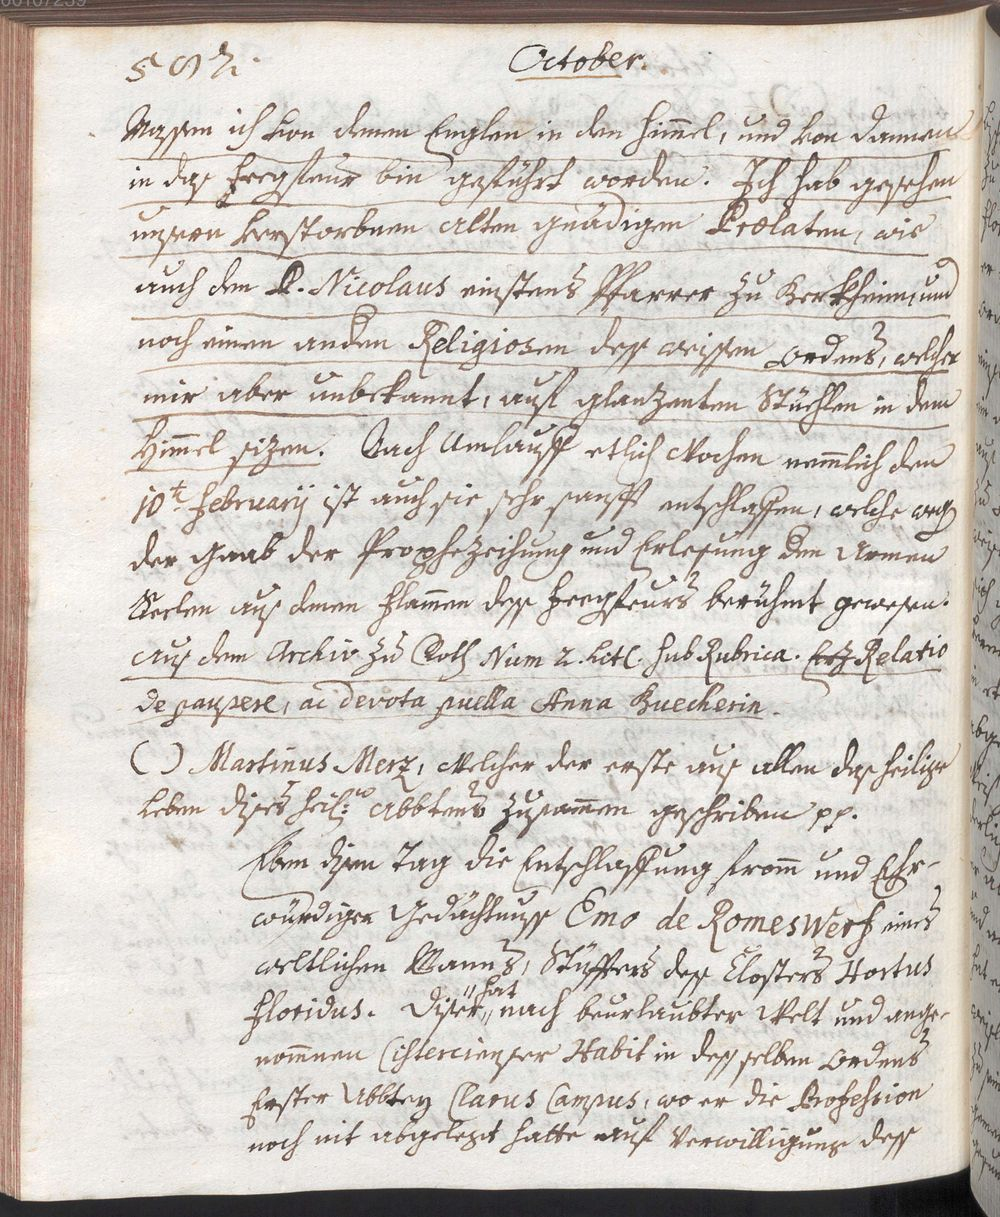 592.
October.
Massen ich von denen Englen in den Himmel, und von dannen
in das Feegfeur bin geführt worden. Ich hab gesehen
unsern verstorbnen alten gnädigen Prælaten, wie
auch den P. Nicolaus einstens Pfarrer zu Kerkheim, und
noch einen anden Religiosen dess weissen ordens, welcher
mir aber unbekannt, auf glanzenten Stüehlen in dem
Himmel sizen. Nach Umlauff etlich Wochen nemmlich den
10t. February ist auch sie sehr sanfft entschlaffen, welche weg
der Gaab der Prophezeihung und Erlesung den Armen
Seelen aus denen Flammen dess Feegfeurs berühmt gewesen.
aus dem Archiv zu Roth Num 2. Litt. sub Rubrica. Relatio
de paupere, ac devota puella Anna Buecherin.
( ) Martinus Merz, Welcher der erste aus allen das heilige
Leben dises heil: Abbtens zusammen geschriben pp.
Eben disen Tag die Entschlaffung fromm und Ehr-
würdiger Gedächtnuss Emo de Romeswerf eines
weltlichen Manns, Stüffters des Closters Hortus
Floridus. Diser hat nach beurlaubter Welt und ange-
nommnen Cistercienser Habit in desselben Ordens
Erster Abbtey Clarus Campus, wo er die Profession
noch nit abgelegt hatte auf Verwilligung dess